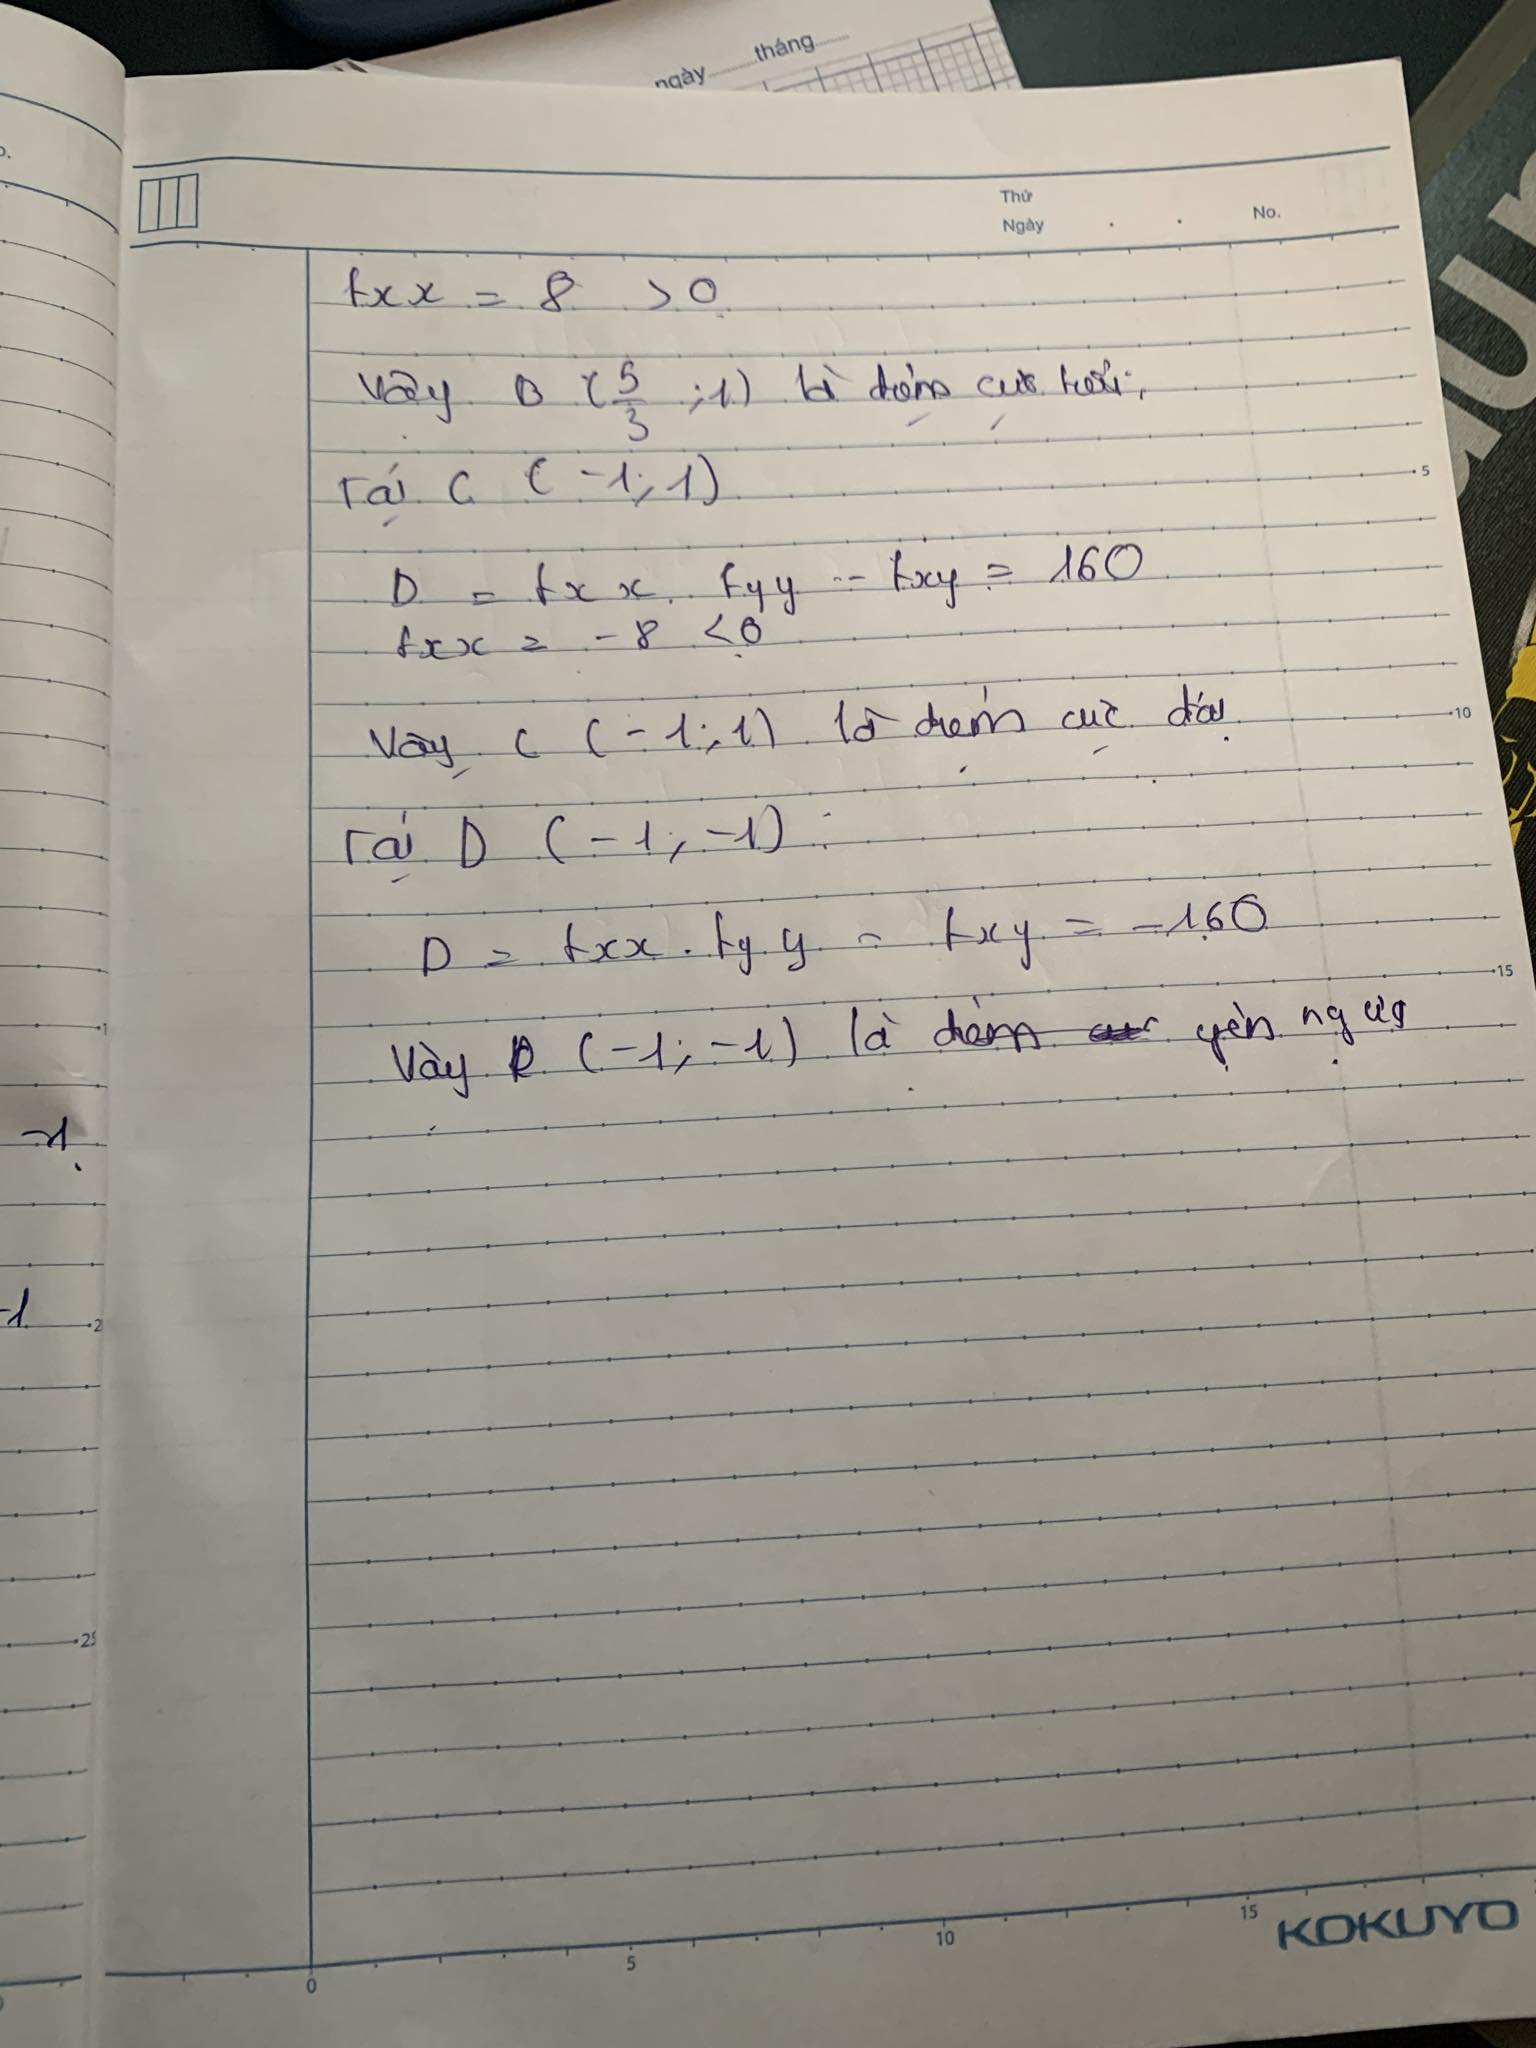 ngày......tháng......
Thứ
Ngày . . No.
fxx = 8 > 0
Vậy B (5/3 ; 1) là điểm cực tiểu.
Tại C (-1; 1)
D = fxx . fyy - fxy = 160
fxx = -8 < 0
Vậy C (-1; 1) là điểm cực đại
Tại D (-1; -1) :
D = fxx . fyy - fxy = -160
Vậy (-1; -1) là điểm yên ngựa
-1
-1
5
10
15
2
25
0 5 10 15
KOKUYO